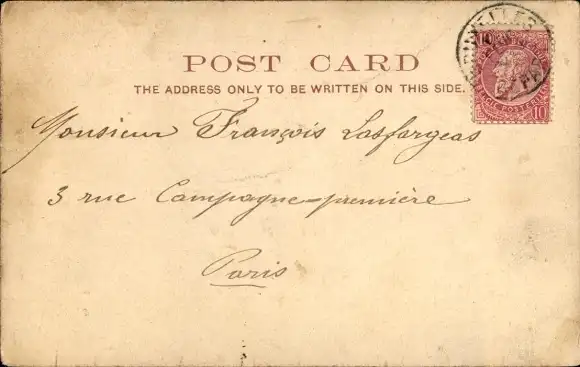 POST CARD
THE ADDRESS ONLY TO BE WRITTEN ON THIS SIDE.
10
Monsieur François Lasfargeas
3 rue Campagne-première
Paris